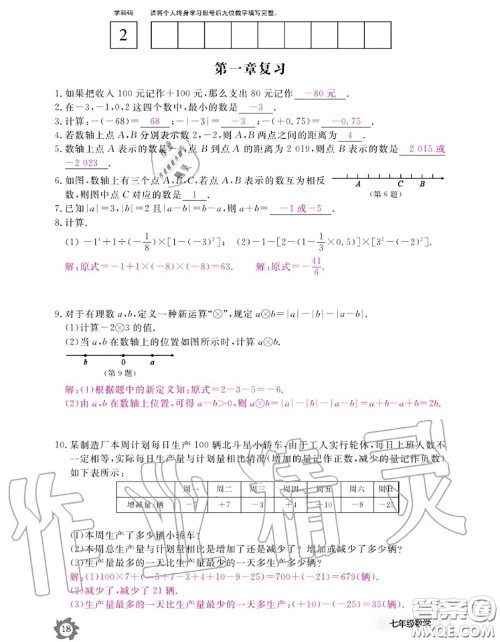 学科码 请将个人终身学习形号后九位数字填写完整。
2
第一章复习
1. 如果把收入 100 元记作+100 元,那么支出 80 元记作 -80 元.
2. 在-3,-1,0,2 这四个数中,最小的数是 -3 .
3. 计算:-(-68)= 68 ;-|-3|= -3 ;-(+0.75)= -0.75 .
4. 若数轴上点 A,B 分别表示数 2,-2,则 A,B 两点之间的距离为 4 .
5. 数轴上点 A 表示的数是 ,点 B 到点 A 的距离为 2 019,则点 B 表示的数是 2 015 或
-2 023 .
6. 如图,数轴上有三个点 A,B,C,若点 A,B 表示的数互为相反
数,则图中点 C 对应的数是 1 .
A C B
(第 6 题)
7. 已知|a|=3,|b|=2 且|a-b|=b-a,则 a+b= -1或-5 .
8. 计算.
(1) -1⁴+1÷(-1/8)×[1-(-3)²]; (2)-1-[2-(1-1/3×0.5)]×[3²-(-2)²].
解:原式=-1+1×(-8)×(-8)=63. 解:原式=-41/6.
9. 对于有理数 a,b,定义一种新运算“⊗”,规定 a⊗b=|a|-|b|-|a-b|.
(1)计算-2⊗3 的值.
(2)当 a,b 在数轴上的位置如图所示时,计算 a⊗b.
b 0 a
(第 9 题)
解:(1)根据题中的新定义知:原式=2-3-5=-6.
(2)由 a,b 在数轴上位置,可得 a-b>0,则 a⊗b=|a|-|b|-|a-b|=a+b-a+b=2b.
10. 某制造厂本周计划每日生产 100 辆北斗星小轿车,由于工人实行轮休,每日上班人数不
一定相等,实际每日生产量与计划量相比情况(增加的量记作正数,减少的量记作负数)
如下表所示:
周一 周二 周三 周四 周五 周六 周日
增减量/辆 +7 -3 +4 +10 -9 -25
(1)本周生产了多少辆小轿车?
(2)本周总生产量与计划量相比是增加了还是减少了?增加或减少了多少?
(3)生产量最多的一天比生产量最少的一天多生产了多少?
解:(1)100×7+(-5+7-3+4+10-9-25)=700+(-21)=679(辆).
(2)减少了,减少了 21 辆.
(3)生产量最多的一天比生产量最少的一天多生产了:(+10)-(-25)=35(辆).
18
七年级数学